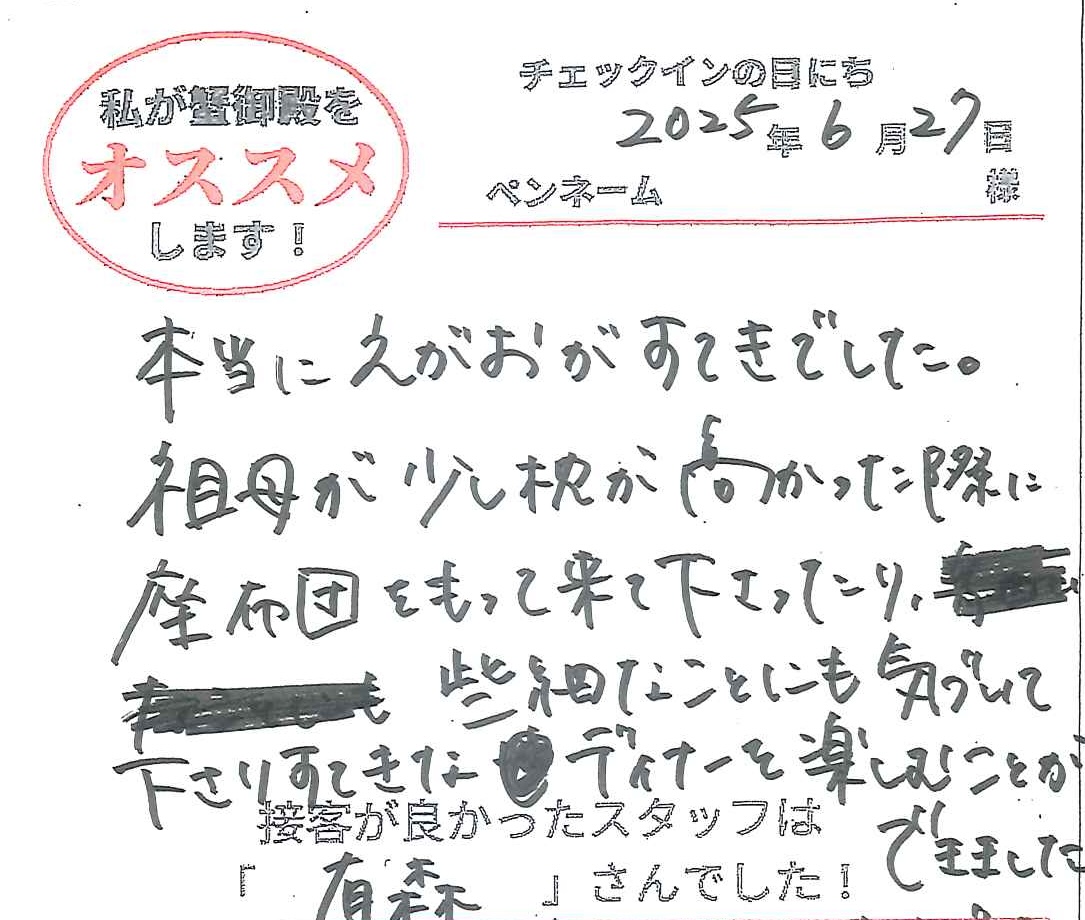 私が蟹御殿を
オススメ
します!
チェックインの日にち
2025年6月27日
ペンネーム 様
本当にえがおがすてきでした。
祖母が少し枕が高かった際に
座布団をもって来て下さったり、
も 些細なことにも気づいて
下さりすてきな ディナーを楽しむことが
できました
接客が良かったスタッフは
「 有森 」さんでした!